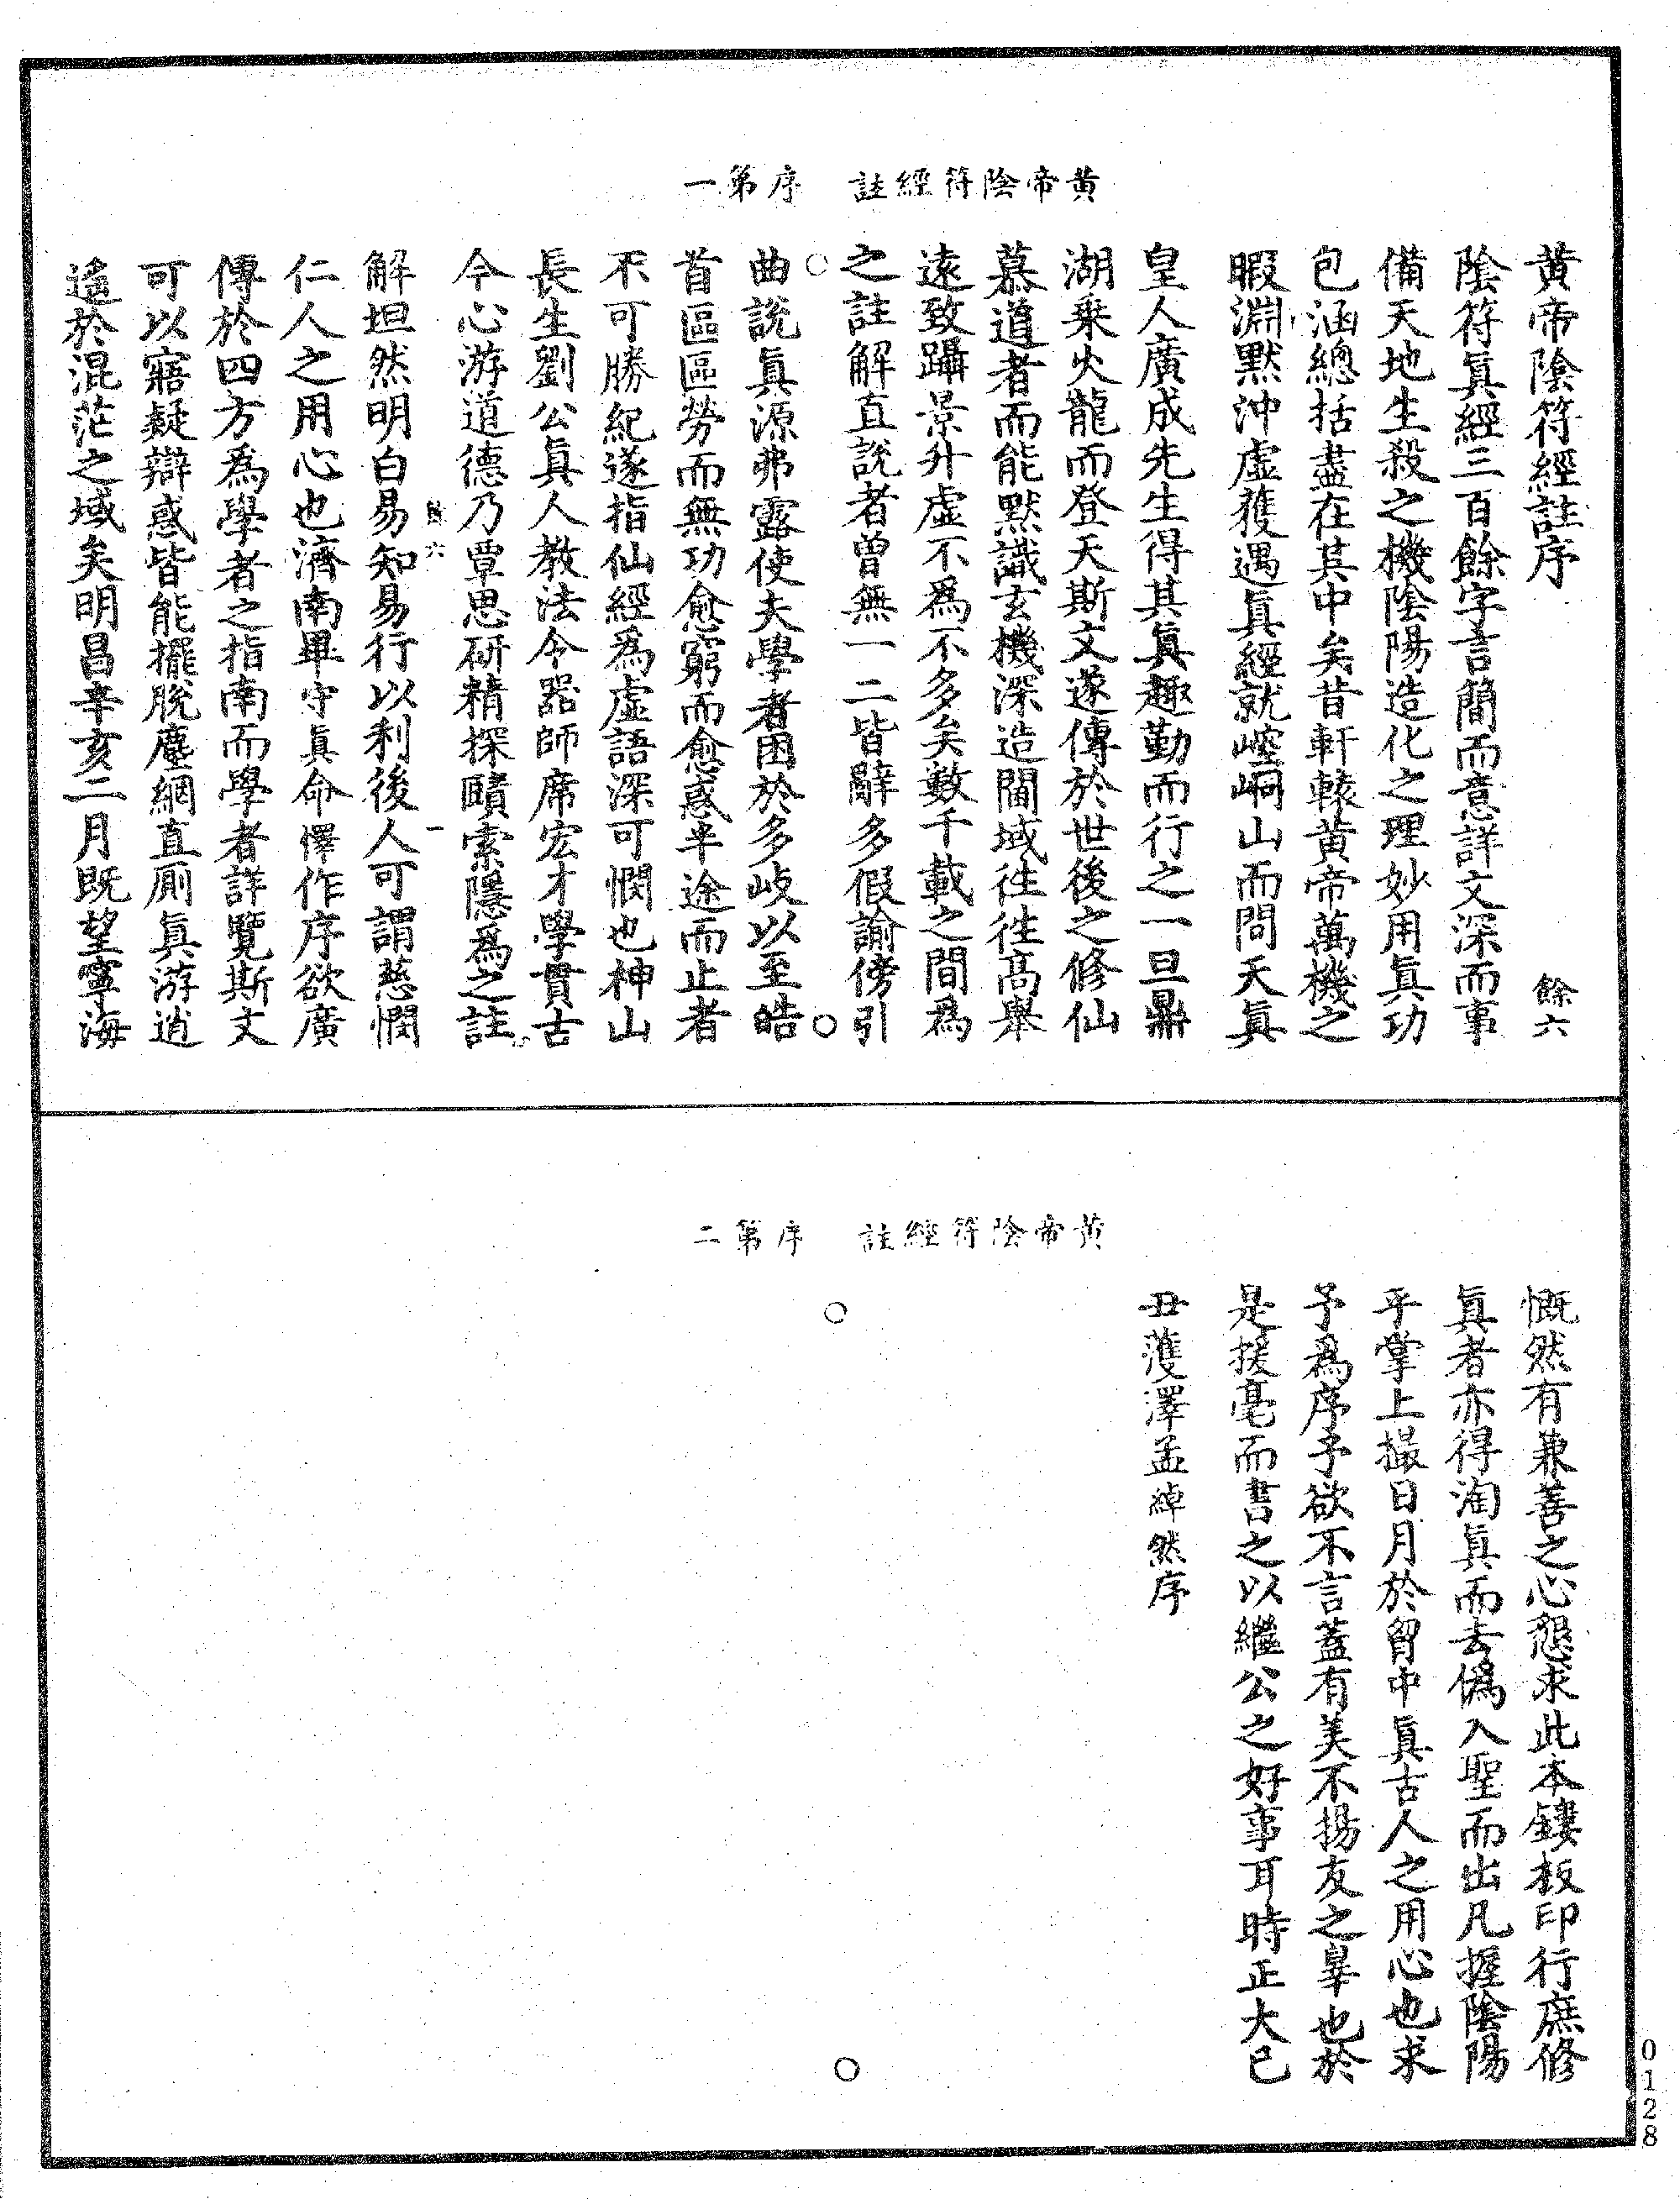 黃帝陰符經註　序第一
黃帝陰符經註序　餘六
陰符眞經三百餘字言簡而意詳文深而事
備天地生殺之機陰陽造化之理妙用眞功
包涵總括盡在其中矣昔軒轅黃帝萬機之
暇淵默沖虛獲遇眞經就崆峒山而問天眞
皇人廣成先生得其眞趣勤而行之一旦鼎
湖乗火龍而登天斯文遂傳於世後之修仙
慕道者而能默識玄機深造閫域徃徃高舉
遠致躡景升虛不爲不多矣數千載之間爲
之註解直說者曾無一二皆辭多假諭傍引
曲說眞源弗露使夫學者困於多岐以至皓
首區區勞而無功愈窮而愈惑半途而止者
不可勝紀遂指仙經爲虛語深可憫也神山
長生劉公眞人教法令器師席宏才學貫古
今心游道德乃覃思研精探賾索隱爲之註
解坦然明白易知易行以利後人可謂慈憫
仁人之用心也濟南畢守眞命懌作序欲廣
傳於四方爲學者之指南而學者詳覽斯文
可以寤疑辯惑皆能擺脫塵網直厠眞游逍
遙於混茫之域矣明昌辛亥二月旣望寧海
餘六　一
黃帝陰符經註　序第二
慨然有兼善之心懇求此本鏤板印行庶修
眞者亦得淘眞而去僞入聖而出凡握陰陽
乎掌上撮日月於胷中眞古人之用心也求
予爲序予欲不言蓋有美不揚友之辠也於
是援毫而書之以繼公之好事耳時正大己
丑蒦澤孟綽然序
0128